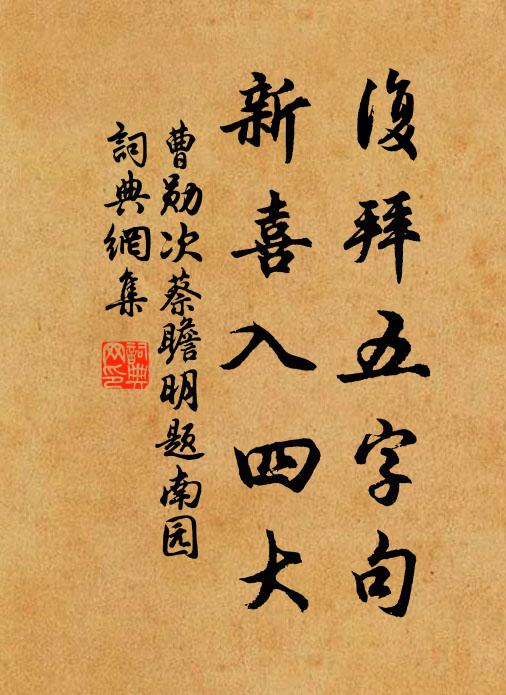 復拜五字句
新喜入四大
曹勋次蔡瞻明题南园
詞典網集
詞典
网印